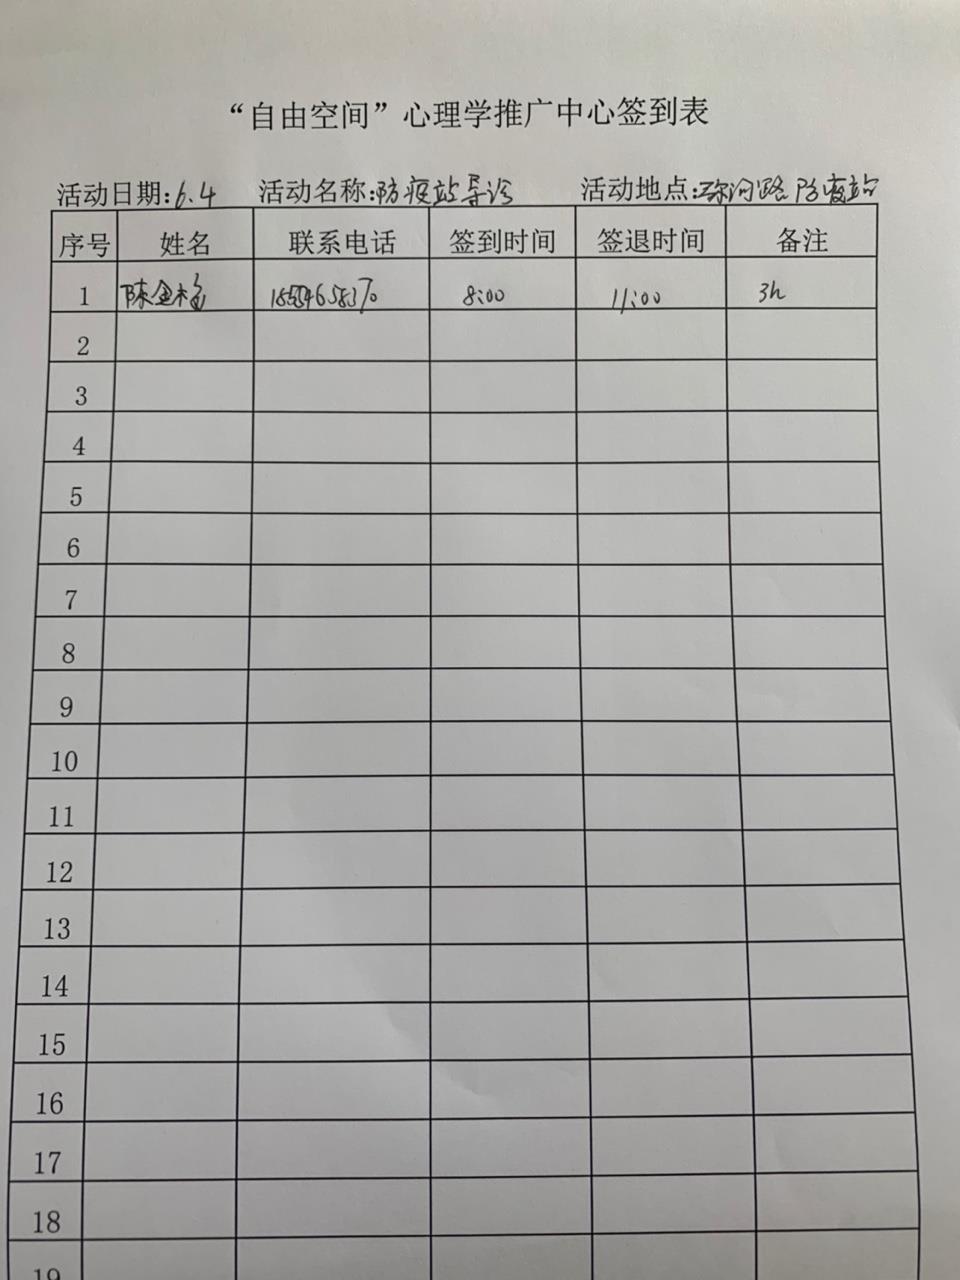 “自由空间”心理学推广中心签到表
活动日期:6.4 活动名称:防疫站导诊 活动地点:弥河路防疫站
序号 姓名 联系电话 签到时间 签退时间 备注
1 陈金梅 8:00 11:00 3h
2
3
4
5
6
7
8
9
10
11
12
13
14
15
16
17
18
19